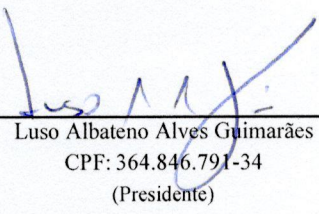 Luso Albateno Alves Guimarães
CPF: 364.846.791-34
(Presidente)